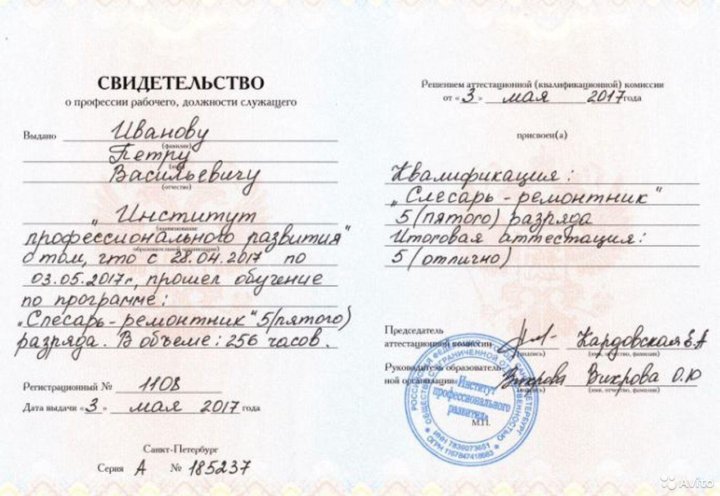 СВИДЕТЕЛЬСТВО
о профессии рабочего, должности служащего
Выдано Иванову
(фамилия)
Петру
Васильевичу
(отчество)
"Институт
(наименование
профессионального развития"
образовательной организации)
о том, что с 28.04.2017 по
03.05.2017г, прошел обучение
по программе:
"Слесарь-ремонтник" 5(пятого)
разряда. В объеме: 256 часов.
Регистрационный № 1108
Дата выдачи «3» мая 2017 года
Санкт-Петербург
Серия А № 185237
Решением аттестационной (квалификационной) комиссии
от «3» мая 2017 года
присвоен(а)
Квалификация:
"Слесарь-ремонтник"
5(пятого) разряда
Итоговая аттестация:
5(отлично)
Председатель
аттестационной комиссии Кардовская Е.А
(подпись) (имя, отчество, фамилия)
Руководитель образователь-
ной организации Вихрова Вихрова О.Ю
(подпись) (имя, отчество, фамилия)
М.П.
Институт
профессионального
развития
ИНН 7839073651
ОГРН 1167847418663
Avito